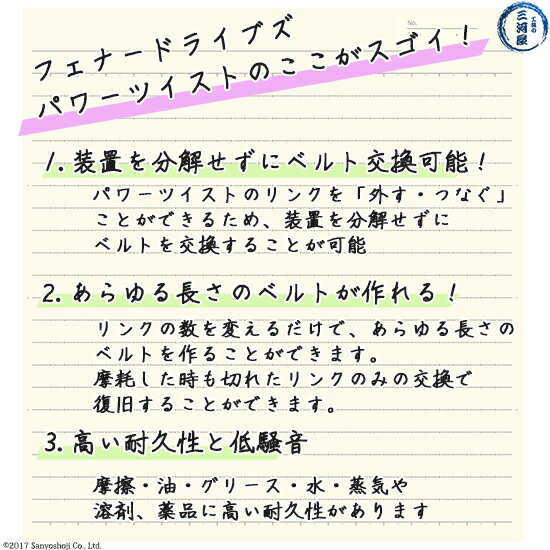 No.
工具の
三河屋
フェナードライブズ
パワーツイストのここがスゴイ！
1. 装置を分解せずにベルト交換可能！
パワーツイストのリンクを「外す・つなぐ」
ことができるため、装置を分解せずに
ベルトを交換することが可能
2. あらゆる長さのベルトが作れる！
リンクの数を変えるだけで、あらゆる長さの
ベルトを作ることができます。
摩耗した時も切れたリンクのみの交換で
復旧することができます。
3. 高い耐久性と低騒音
摩擦・油・グリース・水・蒸気や
溶剤、薬品に高い耐久性があります
©2017 Sanyoshoji Co., Ltd.